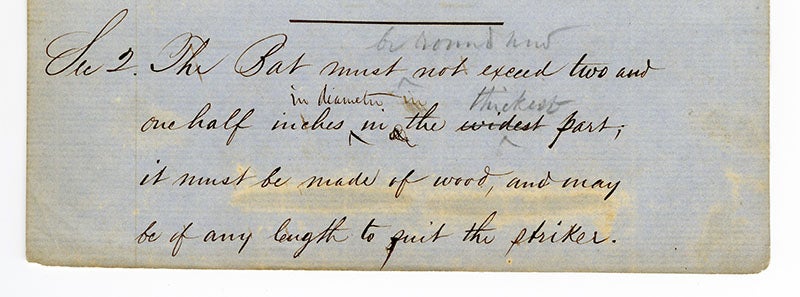 be round and
Sec 2. The Bat must not exceed two and
in diameter in thickest
one half inches in the widest part;
it must be made of wood, and may
be of any length to suit the striker.